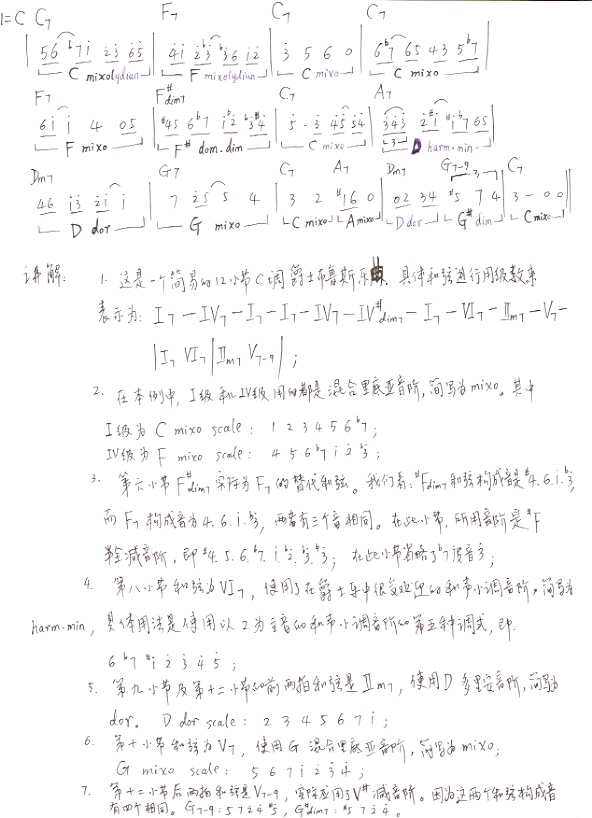 1=C C7 F7 C7 C7
| 56 ♭7i 2̇3̇ 6̇5̇ | 4̇i 2̇♭3̇ ♭3̇6 i2̇ | 3̇ 5 6 0 | 6♭7 65 43 5♭7 |
C mixolydian F mixolydian C mixo C mixo
F7 F#dim7 C7 A7
F mixo F# dom.dim C mixo D harm.min
Dm7 G7 C7 A7 Dm7 G7-9 C7
| 46 i3̇ 2̇i i | 7 2̇5 5 4 | 3 2 #16 0 | 02 34 #5 7 4 | 3 - 0 0 ||
D dor G mixo C mixo A mixo D dor G# dim C mixo
讲解: 1. 这是一个简易的12小节C调爵士布鲁斯乐曲. 具体和弦进行用级数来
表示为: I7—IV7—I7—I7—IV7—IV#dim7—I7—VI7—IIm7—V7—
| I7 VI7 | IIm7 V7-9 | ;
2. 在本例中, I级和IV级用的都是混合里底亚音阶, 简写为mixo。其中
I级为 C mixo scale: 1 2 3 4 5 6 ♭7 ;
IV级为 F mixo scale: 4 5 6 ♭7 i 2̇ ♭3̇ ;
3. 第六小节F#dim7实际为F7的替代和弦。我们看: #Fdim7和弦构成音是#4. 6. i. ♭3̇,
而F7构成音为4. 6. i. ♭3̇, 两者有三个音相同。在此小节, 所用音阶是#F
半全减音阶, 即#4. 5. 6. ♭7. i. ♭2̇. ♭3̇. 3̇; 在此小节省略了
4. 第八小节和弦为VI7, 使用了在爵士乐中很受欢迎的和声小调音阶, 简写为
harm.min, 具体用法是使用以2为主音的和声小调音阶的第五种调式, 即:
6 ♭7 #i 2̇ 3̇ 4̇ 5̇ ;
5. 第九小节及第十二小节的前两拍和弦是IIm7, 使用D多里安音阶, 简写为
dor。 D dor scale: 2 3 4 5 6 7 i ;
6. 第十小节和弦为V7, 使用G混合里底亚音阶, 简写为mixo;
G mixo scale: 5 6 7 i 2̇ 3̇ 4̇ ;
7. 第十二小节后两拍和弦是V7-9, 实际应用了V#减音阶。因为这两个和弦构成音
有四个相同。G7-9: 5 7 2̇ 4̇ #5̇, G#dim7: #5 7 2̇ 4̇ 。